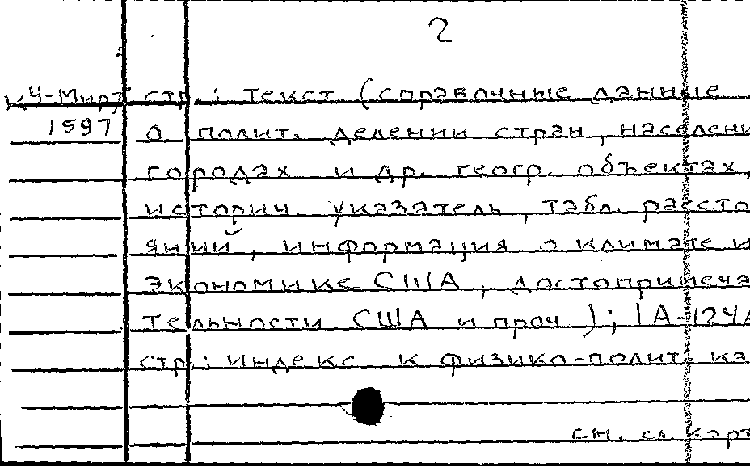 2
К4-Мир; стр.; текст (справочные данные
1597 о полит. делении стран, населени
городах и др. геогр. объектах,
историч. указатель, табл. рассто
яний, информация о климате и
экономике США, достопримеча
тельности США и проч); 1А-124А
стр.: индекс к физико-полит. ка
см. сл. карт